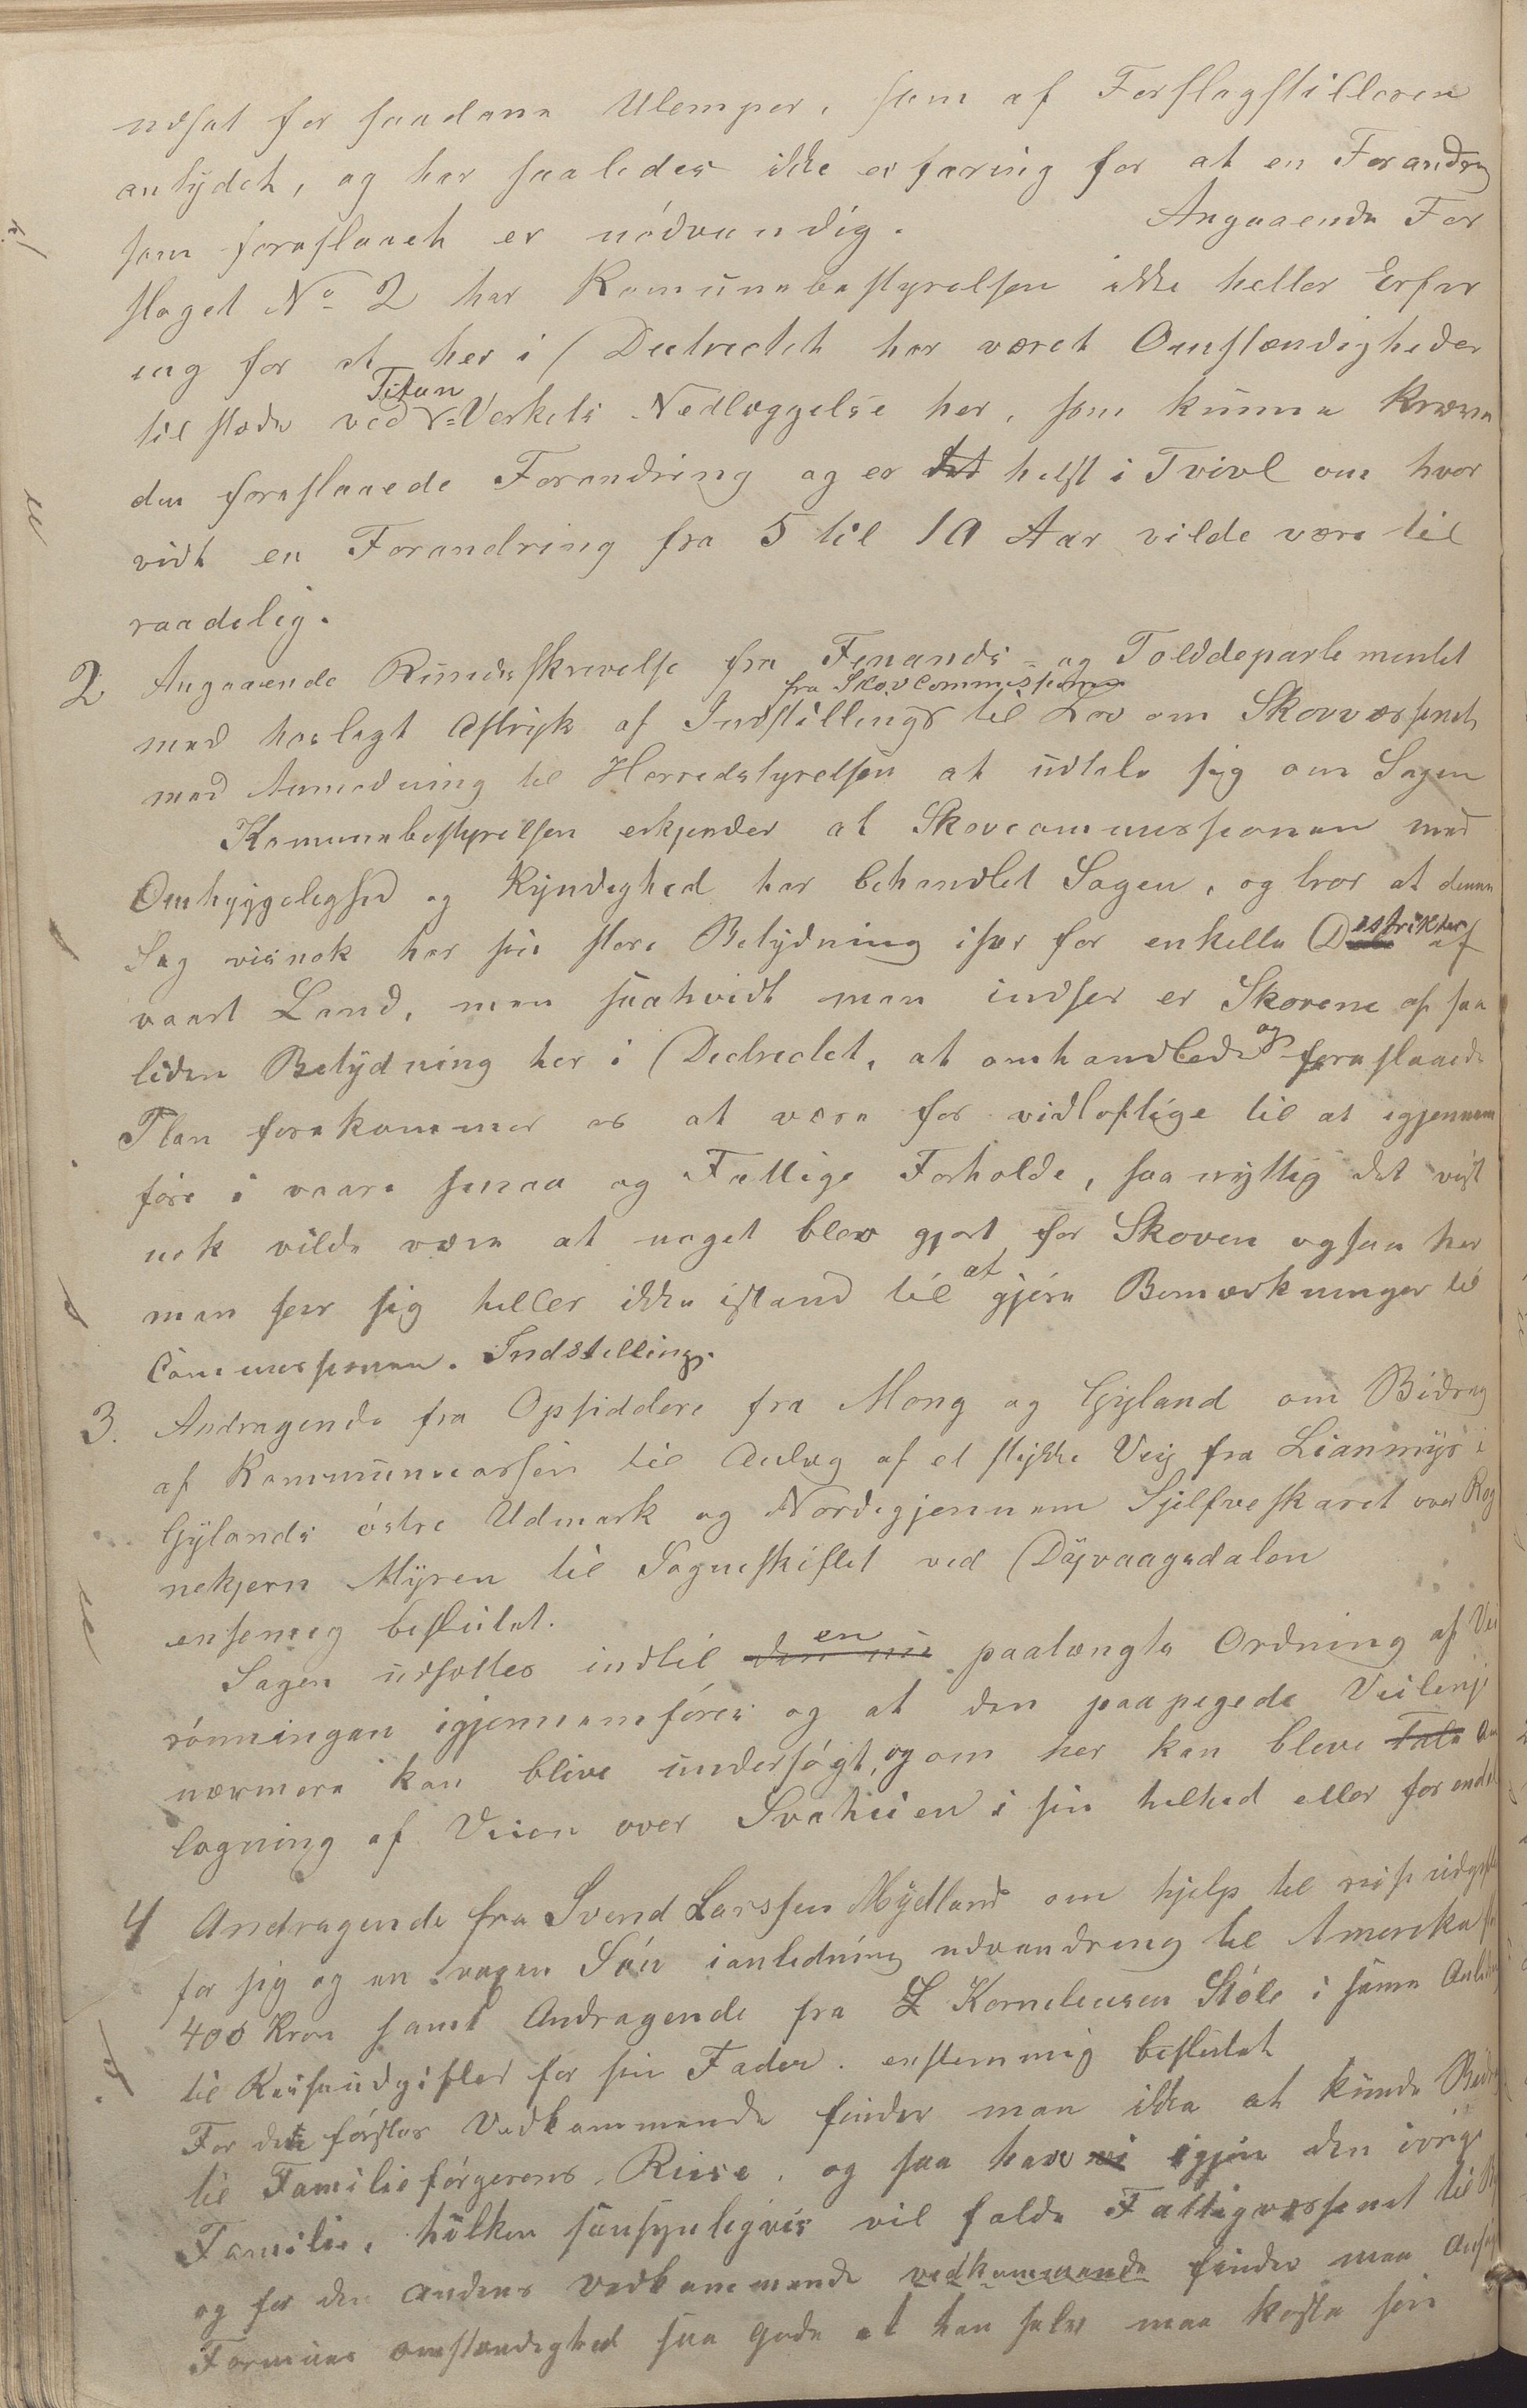 udsat for saadane Ulemper, som af Forslagstilleren
antydet, og har saaledes ikke erfaring for at en Forandrg
som foreslaaet er nödvendig. Angaaende For
slaget No 2 har Komunebestyrelsen ikke heller Erfar
ing for at her i Distrectet har været Omstændigheder
tilstæde ved Titan Verkets Nedlæggelse her, som kunne kræve
den foreslaaede Forandring og er det helst i Tvivl om hvor
vidt en Forandring fra 5 til 10 Aar vilde være til
raadelig.
2 Angaaende Rundeskrivelse fra Finands- og Tolddepartementet
med haslagt Aftryk af Indstillings fra Skovcommissionen til Lov om Skovvæsenet
med Anmodning til Herredstyrelsen at udtale sig om Sagen
Komunebestyrelsen erkjender at Skovcommissionen med
Omhyggelighed og Kyndighed har behandlet Sagen, og tror at denne
Sag visnok har sin store Betydning især for enkelte Destrikter af
vaart Land, men saavidt man indser er Skovene af saa
liden Betydning her i Destrectet, at omhandlede og foreslaaede
Plan forekommer os at være for vidløftige til at igjennem
føre i vaare smaa og Fattige Forholde, saa nyttig det vist
nok vilde være at noget blev gjort for Skoven ogsaa her
man ser sig heller ikke istand til at gjøre Bemærkninger til
Commissionen. Indstilling.
3. Andragende fra Opsiddere fra Mong og Gyland om Bidrag
af Kommunecassen til Anlæg af et stykke Veij fra Lianmyr i
Gylands østre Udmark og Nordigjennem Sjelfveskaret over Rog
nekjern Myren til Sogneskiftet ved Dypvaagsdalen
ensemig besluttet.
Sagen udsættes indtil den nu en paatængte Ordning af Vei
rönningen igjennemføres og at den paapegede Veilenje
nærmere kan blive undersögt, og om her kan bleve Tale Om
lægning af Veien over Svaheien i sin helhed eller for endel
4 Andragende fra Svend Larssen Mydland om hjelp til reiseudgifter
for sig og en voxen Søn ianledning udvandring til Amerika
400 Kron samt Andragende fra L Korneleusen Støle i samme Anledn
til Reiseudgifter for sin Fader. enstemmig besluttet
For den førstes Vedkommende finder man ikke at kunde Bidra
til Familieförgerens Reise, og saa have vi igjen den övrige
Familie, hvilken sansynligvis vil falde Fattigvæsenet til
og for den andens vedkommende vedkommende finder man
Formues omstændighed saa gode at han selv maa koste sin